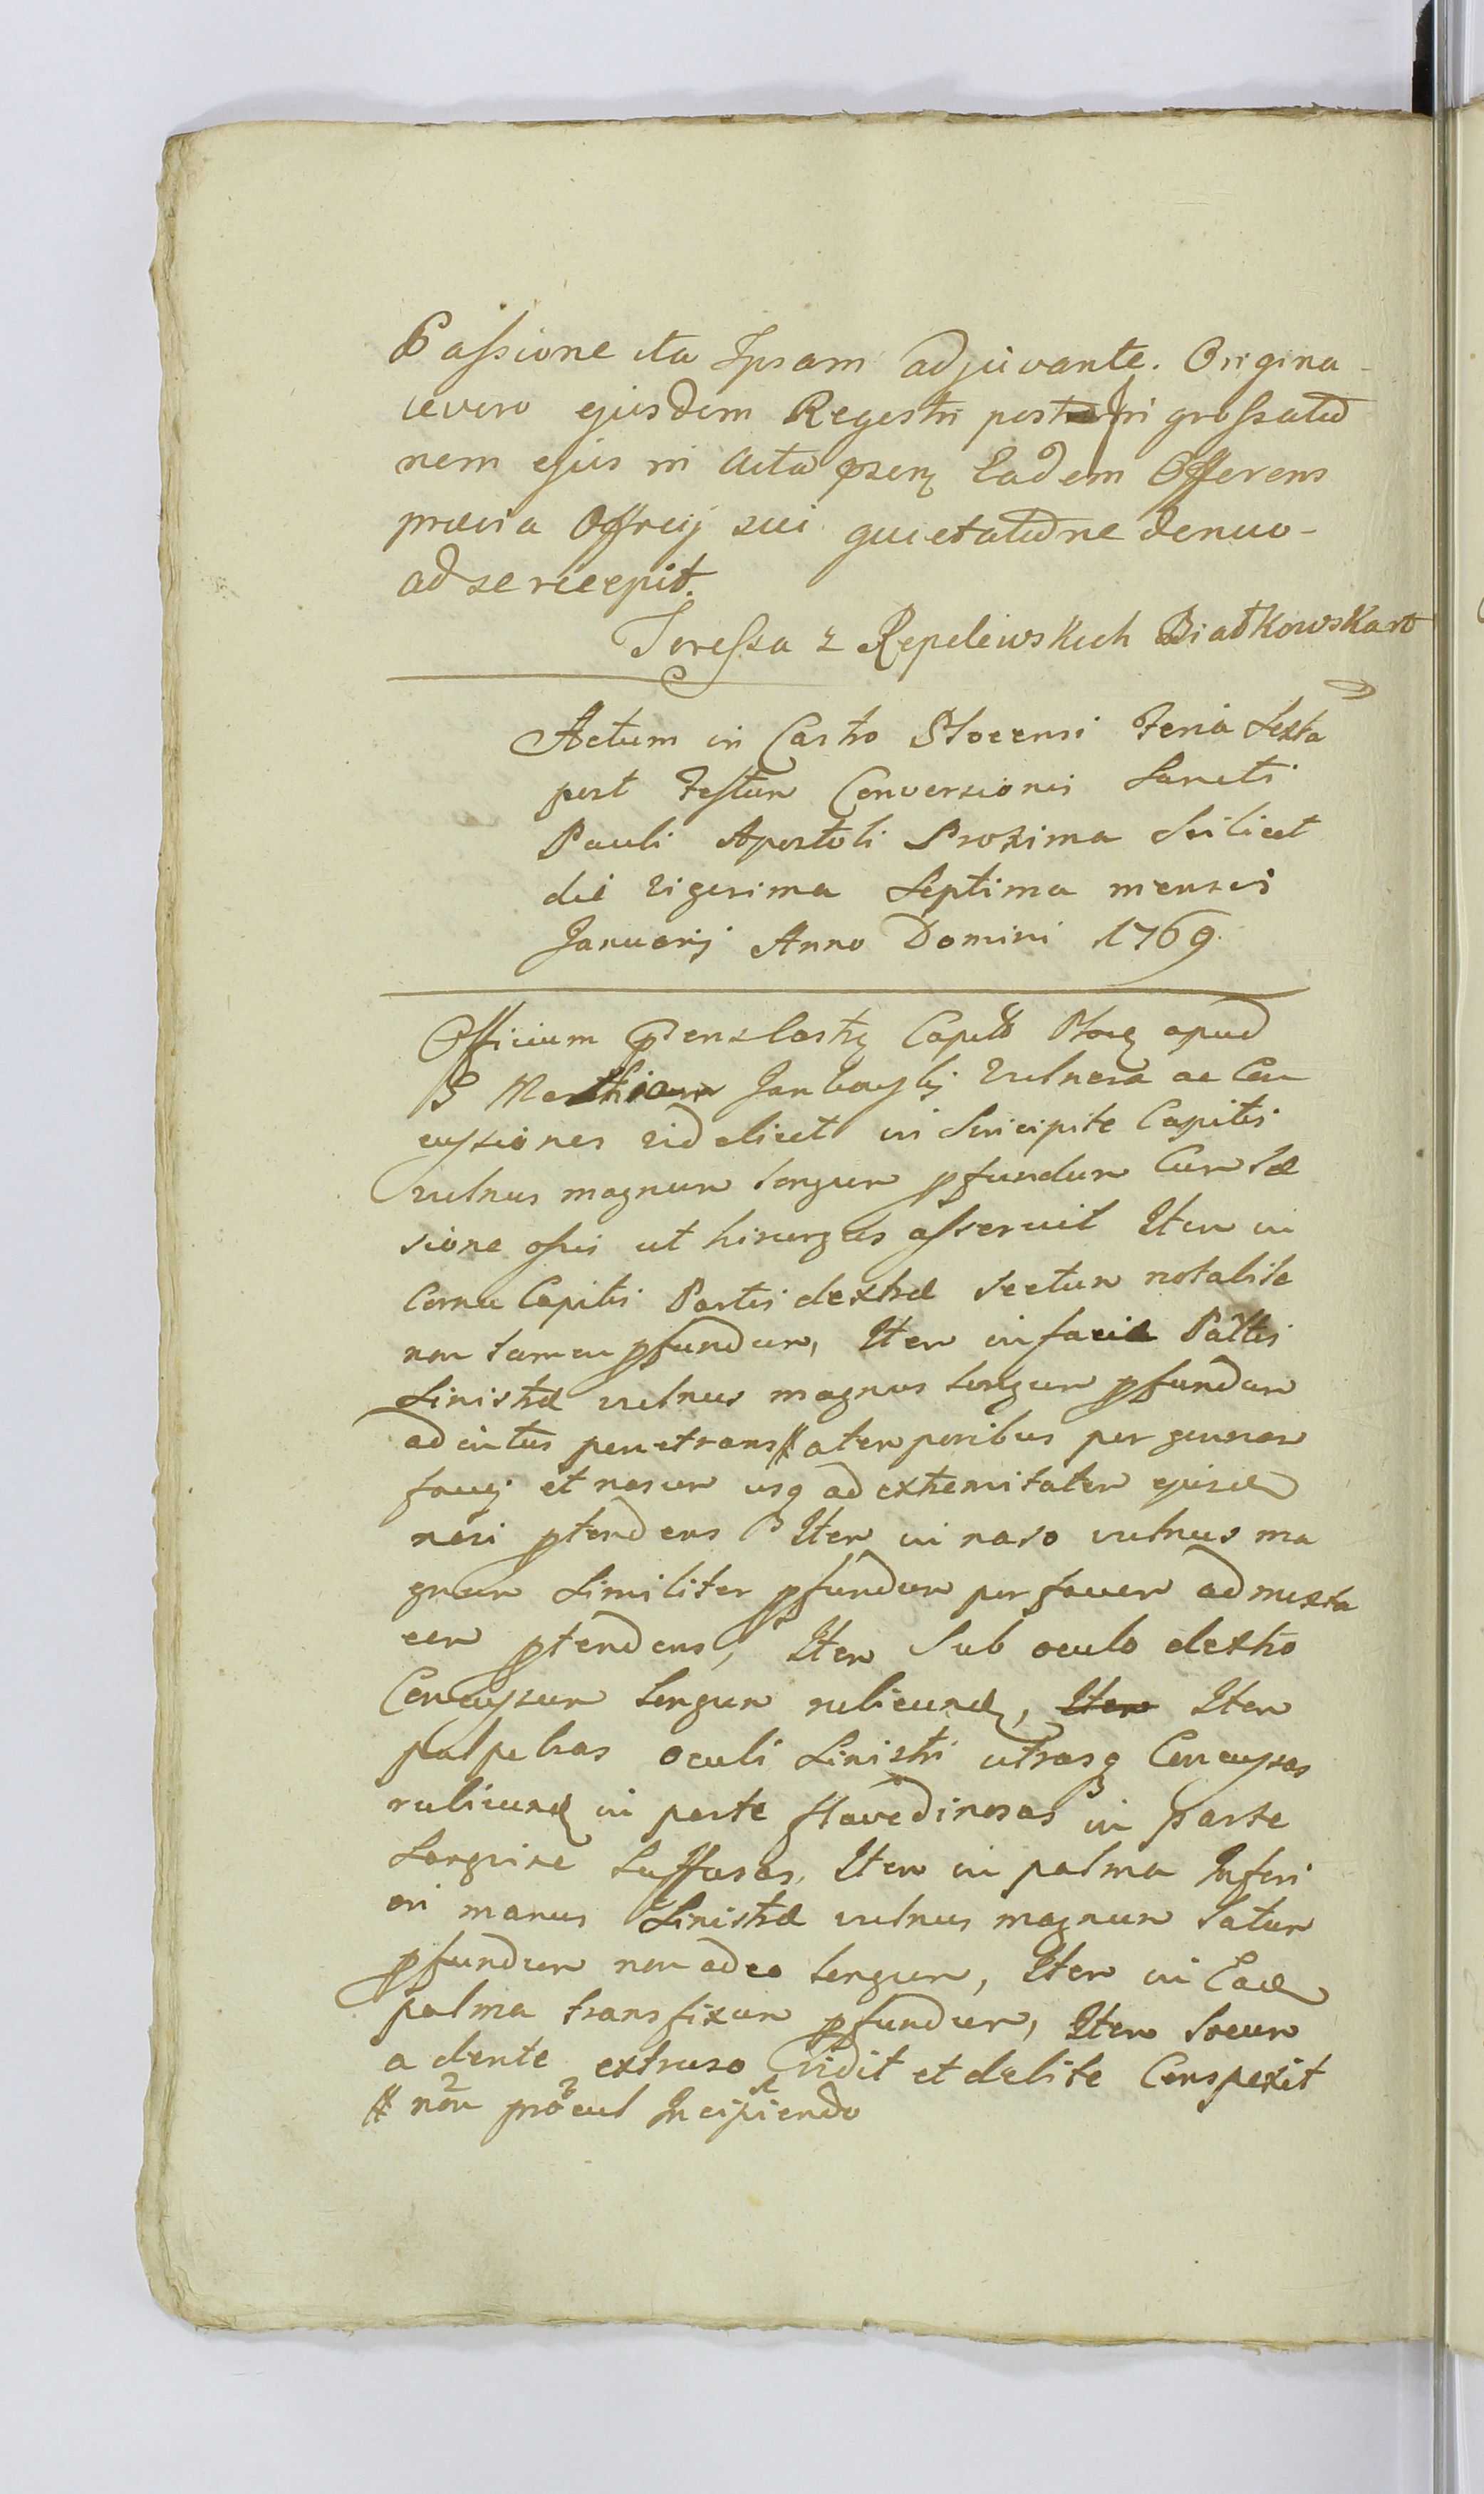 Passione ita Ipsam adjuvante. Origina-
levero ejusdem Regestri post in grossatio
nem ejus in Acta Offerens Eadem
prævia Officij sui quietatione denuo-
ad se recepit.
Teressa z Repelewskich Białkowska
Actum in Castro Plocensi Feria Sexta
post Festum Conversionis Sancti
Pauli Apostoli Proxima Scilicet
die vigesima Septima mensis
Januarij Anno Domini 1769.
Officium Capit apud
G vulnera ac Con
cussiones videlicet in Sincipite Capitis
vulnus magnum longum pfundum Cum læ
sione ossis ut hirurgus asseruit Item in
Cornu Capitis Partis dextræ sectum notabile
non tamen pfundum, Item in facie Partis
Sinistræ vulnus magnum longum pfundum
ad intus penetrans # per genam
et nasum usq ad extremitatem ejusd
nasi ptendens Item in naso vulnus ma
gnum Similiter pfundum per ad
ptendens, Item Sub oculo dextro
Concussum longum rubicund, Item Item
palpebras oculi Sinistri utrasq Concussas
rubicund in parte flavedinosas in parte
Sanguine Suffusas, Item in palma Inferi
ori manus Sinistræ vulnus magnum latum
pfundum non adeo longum, Item in Ead
palma transfixum pfundum, Item locum
a dente extruso vidit et debite Conspexit
# non procul Incipiendo